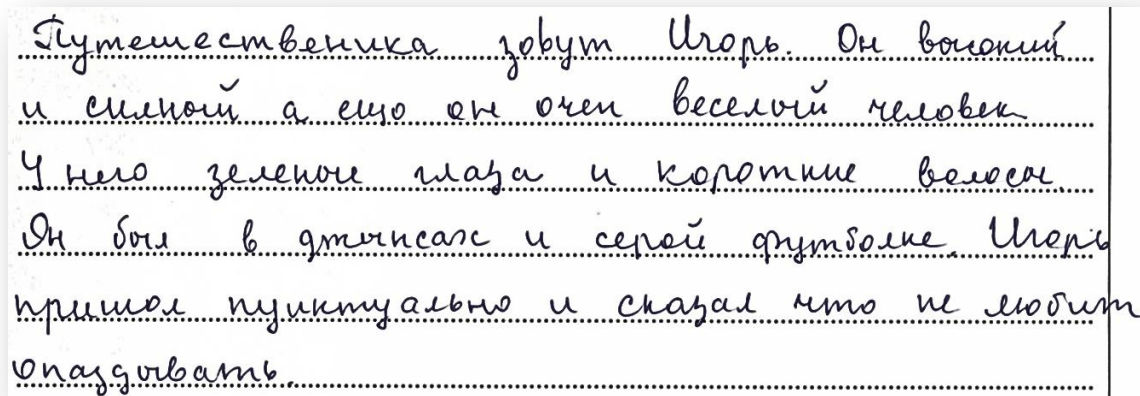 Путешественика зовут Игорь. Он высокий
и силный а ещо он очен веселый человек
У него зеленые глаза и короткие волосы.
Он был в джынсах и серой футболке. Игорь
пришол пунктуально и сказал что не любит
опаздывать.